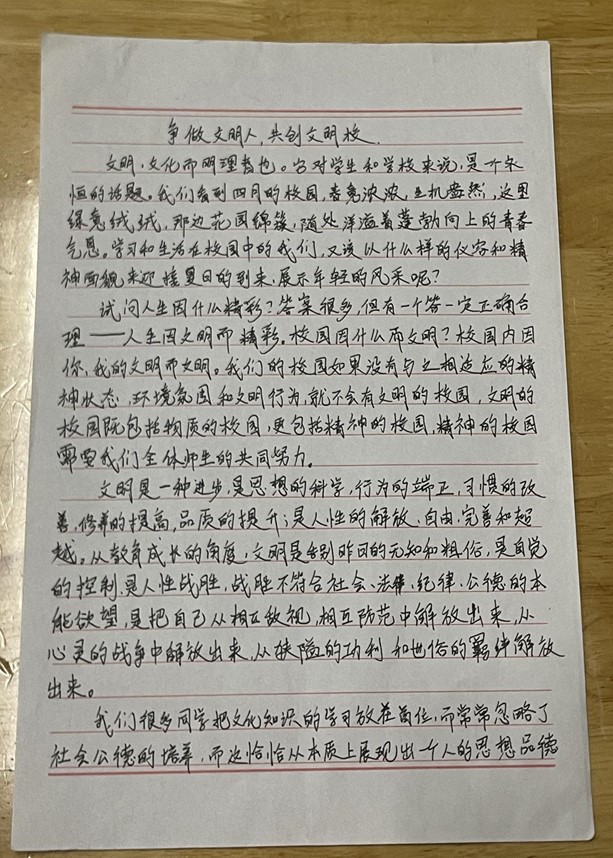 争做文明人,共创文明校.
文明,文化而明理者也。它对学生和学校来说,是一个永
恒的话题。我们看到四月的校园,春意浓浓,生机盎然,这里
绿意绒绒,那边花团绵簇,随处洋溢着蓬勃向上的青春
气息。学习和生活在校园中的我们,又该以什么样的仪容和精
神面貌来迎接夏日的到来,展示年轻的风采呢?
试问人生因什么精彩?答案很多,但有一个答一定正确合
理——人生因文明而精彩。校园因什么而文明?校园内因
你、我的文明而文明。我们的校园如果没有与之相适应的精
神状态、环境氛围和文明行为,就不会有文明的校园,文明的
校园既包括物质的校园,更包括精神的校园,精神的校园
需要我们全体师生的共同努力。
文明是一种进步,是思想的科学,行为的端正,习惯的改
善,修养的提高,品质的提升;是人性的解放、自由、完善和超
越。从教育成长的角度,文明是告别昨日的无知和粗俗,是自觉
的控制,是人性战胜,战胜不符合社会、法律、纪律、公德的本
能欲望,是把自己从相互敌视,相互防范中解放出来,从
心灵的战争中解放出来,从狭隘的功利和世俗的羁绊解放
出来。
我们很多同学把文化知识的学习放在首位,而常常忽略了
社会公德的培养,而这恰恰从本质上展现出一个人的思想品德